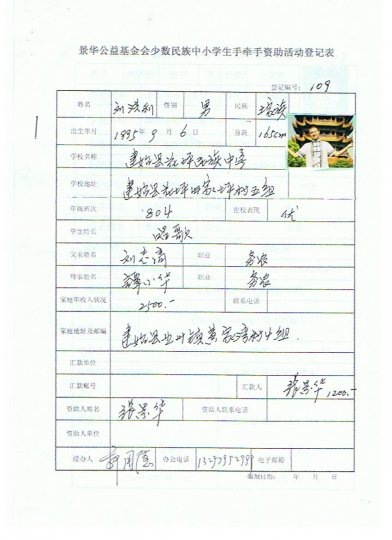 景华公益基金会少数民族中小学生手牵手资助活动登记表
登记编号： 109
姓名 刘洪利 性别 男 民族 土家族
出生年月 1995年9月6日 身高 165cm
学校名称 建始县花坪民族中学
学校地址 建始县花坪 村五组
年级班次 804 在校表现 优
学生特长 唱歌
父亲姓名 刘志 职业 务农
母亲姓名 小华 职业 务农
家庭年收入状况 2500.- 联系电话
家庭地址及邮编 建始县 镇黄家 村4组.
汇款单位
汇款账号 汇款人 张景华 1200.-
资助人姓名 张景华 资助人联系电话
资助人单位
经办人 办公电话 13297952999 电子邮箱
编制日期： 年 月 日